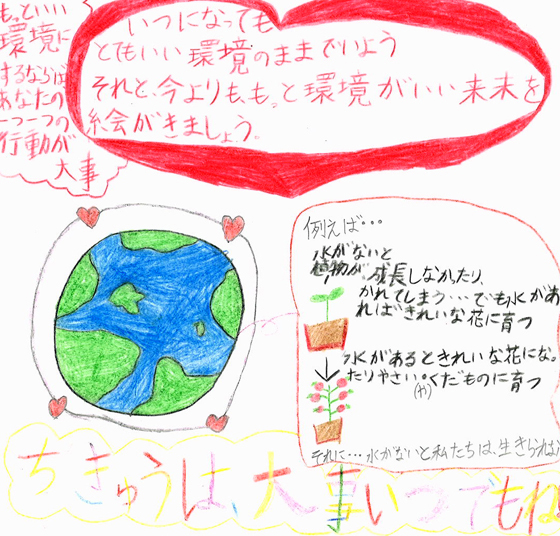 もっといい
環境に
するならば
あなたの
一つ一つの
行動が
大事
いつになっても
とてもいい環境のままでいよう
それと、今よりも、もっと環境がいい未来を
絵がきましょう。
例えば…
水がないと
植物が成長しなかったり、
かれてしまう…でも水があ
ればきれいな花に育つ
水があるときれいな花にな。
たりやさい。くだものに育つ
(や)
それに…水がないと私たちは、生きられな
ちきゅうは、大事いつでもね